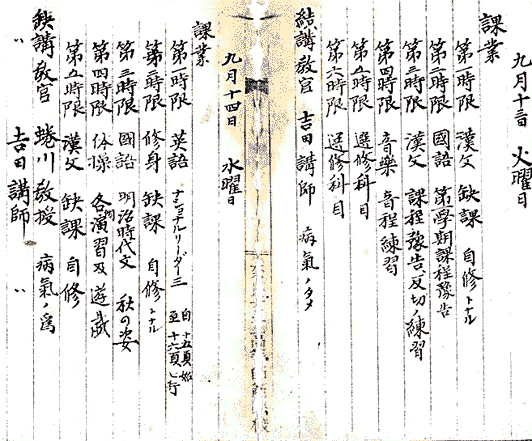 九月十三日 火曜日
課業
第一時限 漢文 缺課 自修トナル
第二時限 國語 第一學期課程豫告
第三時限 漢文 課程豫告及切ノ練習
第四時限 音樂 音程練習
第五時限 選修科目
第六時限 選修科目
結講教官 吉田講師 病氣ノタメ
九月十四日 水曜日
課業
第一時限 英語 ナショナルリーダー三 自十五頁始 至十六頁七行
第二時限 修身 缺課 自修トナル
第三時限 國語 明治時代文 秋の姿
第四時限 体操 各演習及遊戯
第五時限 漢文 缺課 自修
缺講教官 蜷川教授 病氣ノ為
〃 吉田講師 〃